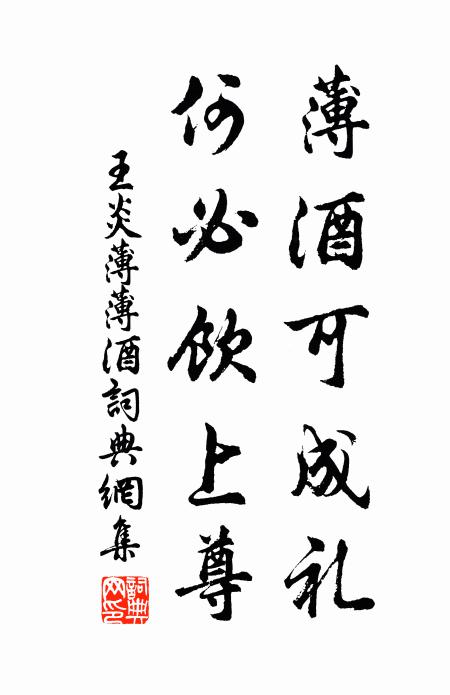 薄酒可成礼
何必飲上尊
王炎薄薄酒詞典網集
詞典網印